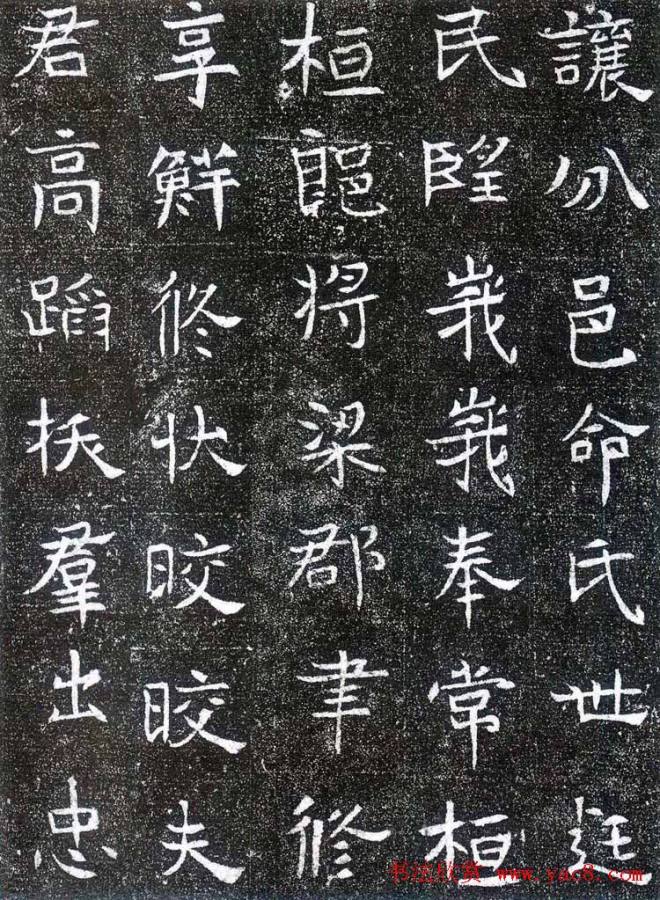 讓分邑命氏世
民朢峩峩奉常桓
桓郎将梁郡聿修
享鮮修状晈晈夫
君高蹈拔羣出忠
书法欣赏 www.yac8.com